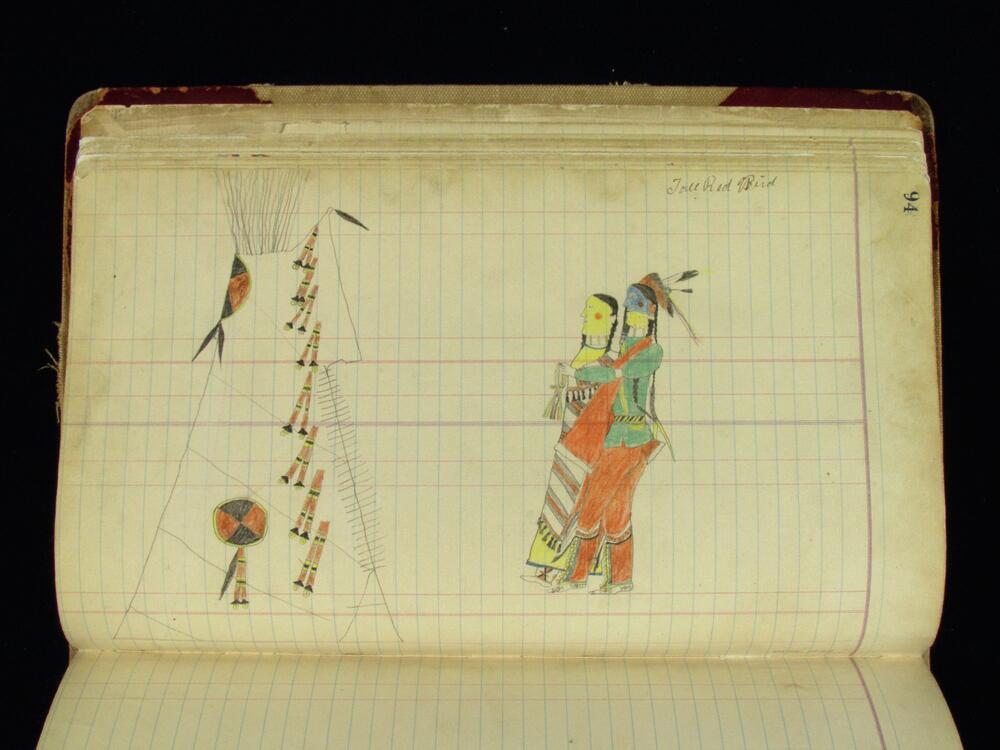 Tall Red Bird
94